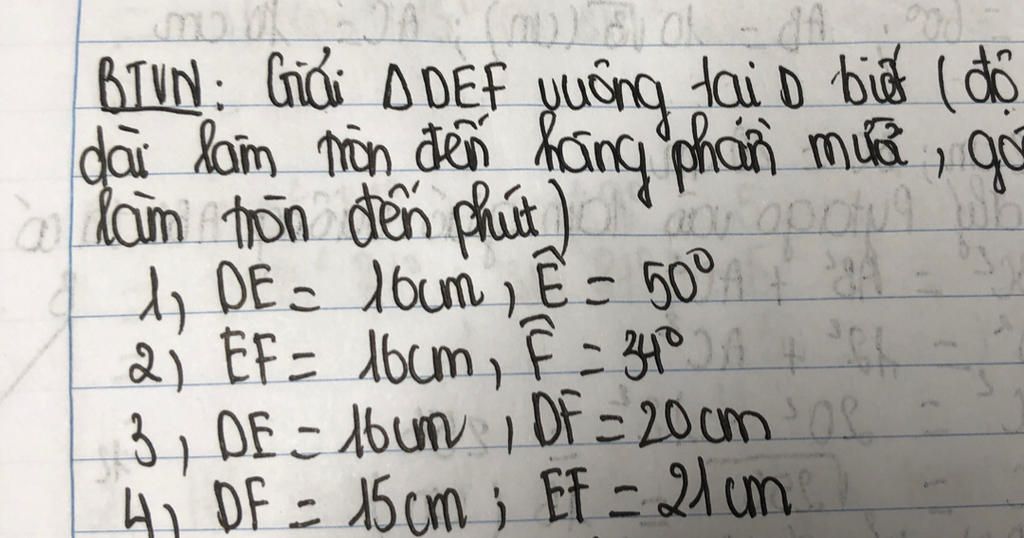 BTVN: Giải ΔDEF vuông tại D biết (độ
dài làm tròn đến hàng phần mười, góc
làm tròn đến phút)
1, DE = 16cm, Ê = 50°
2) EF = 16cm, F̂ = 34°
3, DE = 16cm, DF = 20cm
4) DF = 15cm; EF = 21cm